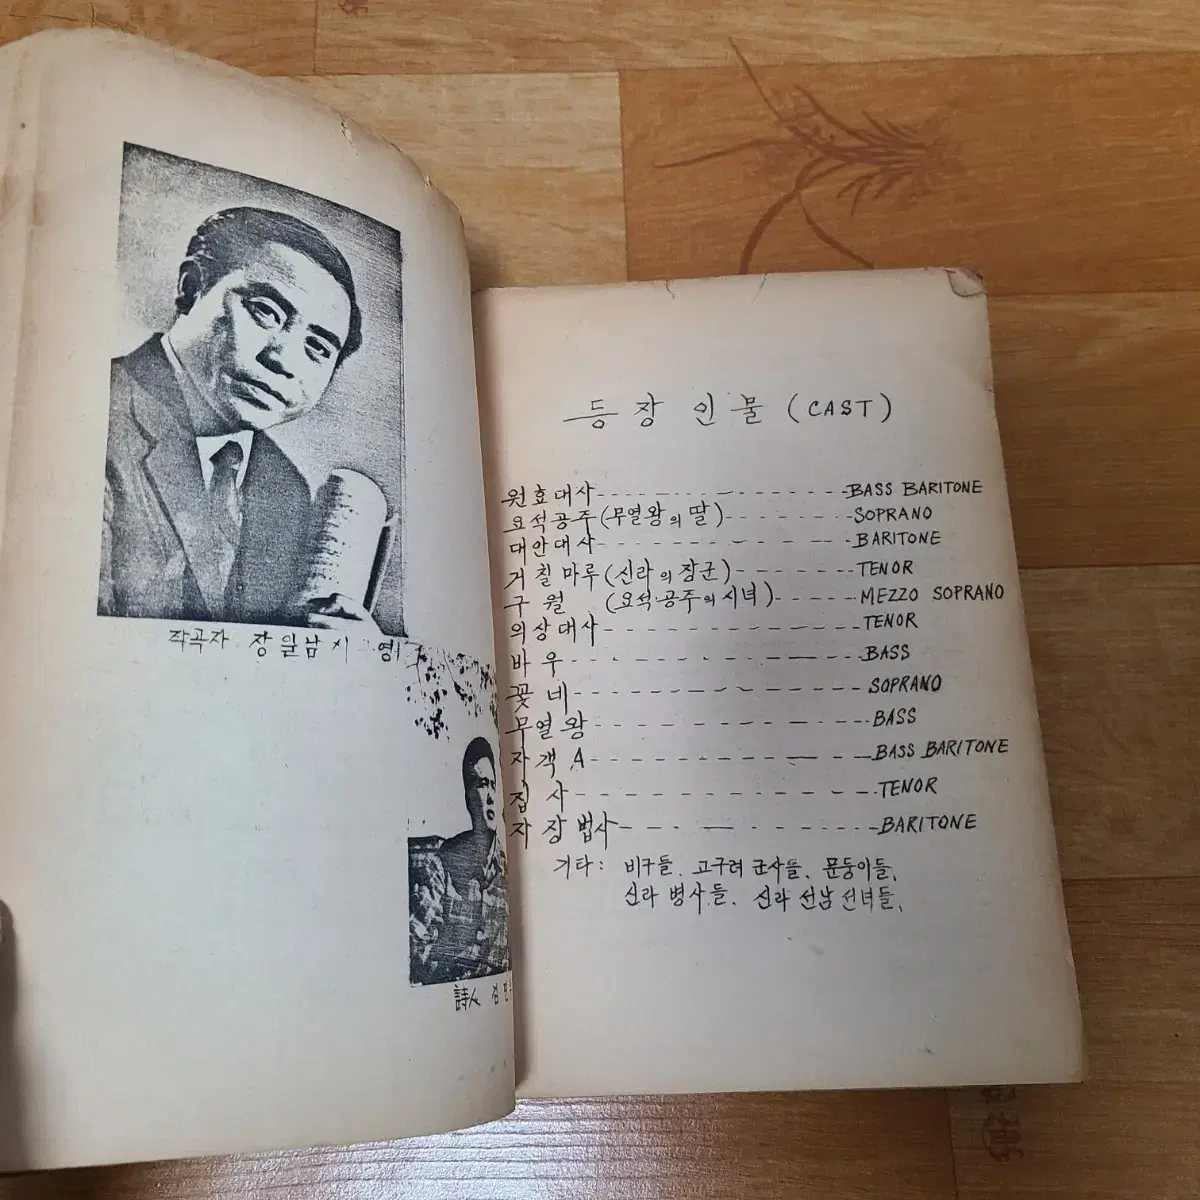 작곡자 장일남
詩人 김민
등장인물 (CAST)
원효대사 BASS BARITONE
요석공주 (무열왕의 딸) SOPRANO
대안대사 BARITONE
거칠마루 (신라의 장군) TENOR
구월 (요석공주의 시녀) MEZZO SOPRANO
의상대사 TENOR
바우 BASS
꽃네 SOPRANO
무열왕 BASS
자객 A BASS BARITONE
집사 TENOR
자장법사 BARITONE
기타: 비구들. 고구려 군사들. 문둥이들.
신라 병사들. 신라 선남 선녀들.